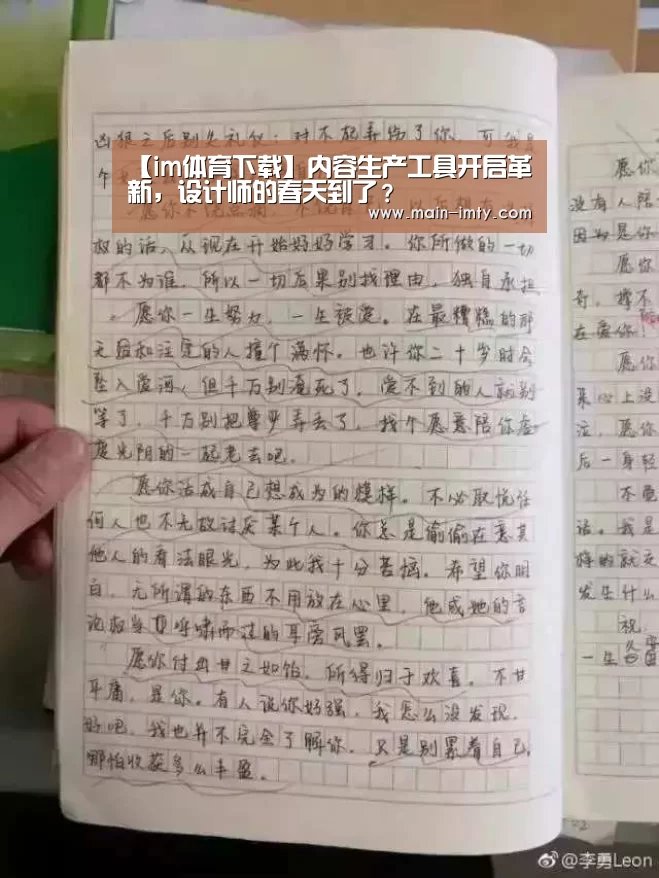 凶狠之后别失礼仪：对不起弄伤了你，可我是
个
【im体育下载】内容生产工具开启革
新，设计师的春天到了？
www.main-imty.com
愿你
敌的话，从现在开始好好学习。你所做的一切
都不为谁，所以一切后果别找理由，独自承担
。愿你一生努力，一生被爱。在最糟糕的那
无题和注定的人撞个满怀。也许你二十岁时会
坠入爱河，但千万别淹死了，爱不到的人就别
等了，千万别把尊严弄丢了，找个愿意陪你虚
度光阴的一起老去吧。
愿你活成自己想成为的模样。不必取悦任
何人也不无故讨厌某个人。你总是偷偷在意其
他人的看法眼光，为此我十分苦恼。希望你明
白，无所谓的东西不用放在心里，他或她的言
论权当耳旁风罢。
愿你付出甘之如饴，所得归于欢喜。不甘
平庸，是你。有人说你好强，我怎么没发现，
好吧，我也并不完全了解你。只是别累着自己，
哪怕收获多么丰盈。
愿你
没有人陪
因为是你
愿你
奇，撑不
在爱你
愿你
来心上没
泣，愿你
后一身轻
不免
话。我是
发生什么
祝
一生
@李勇Leon